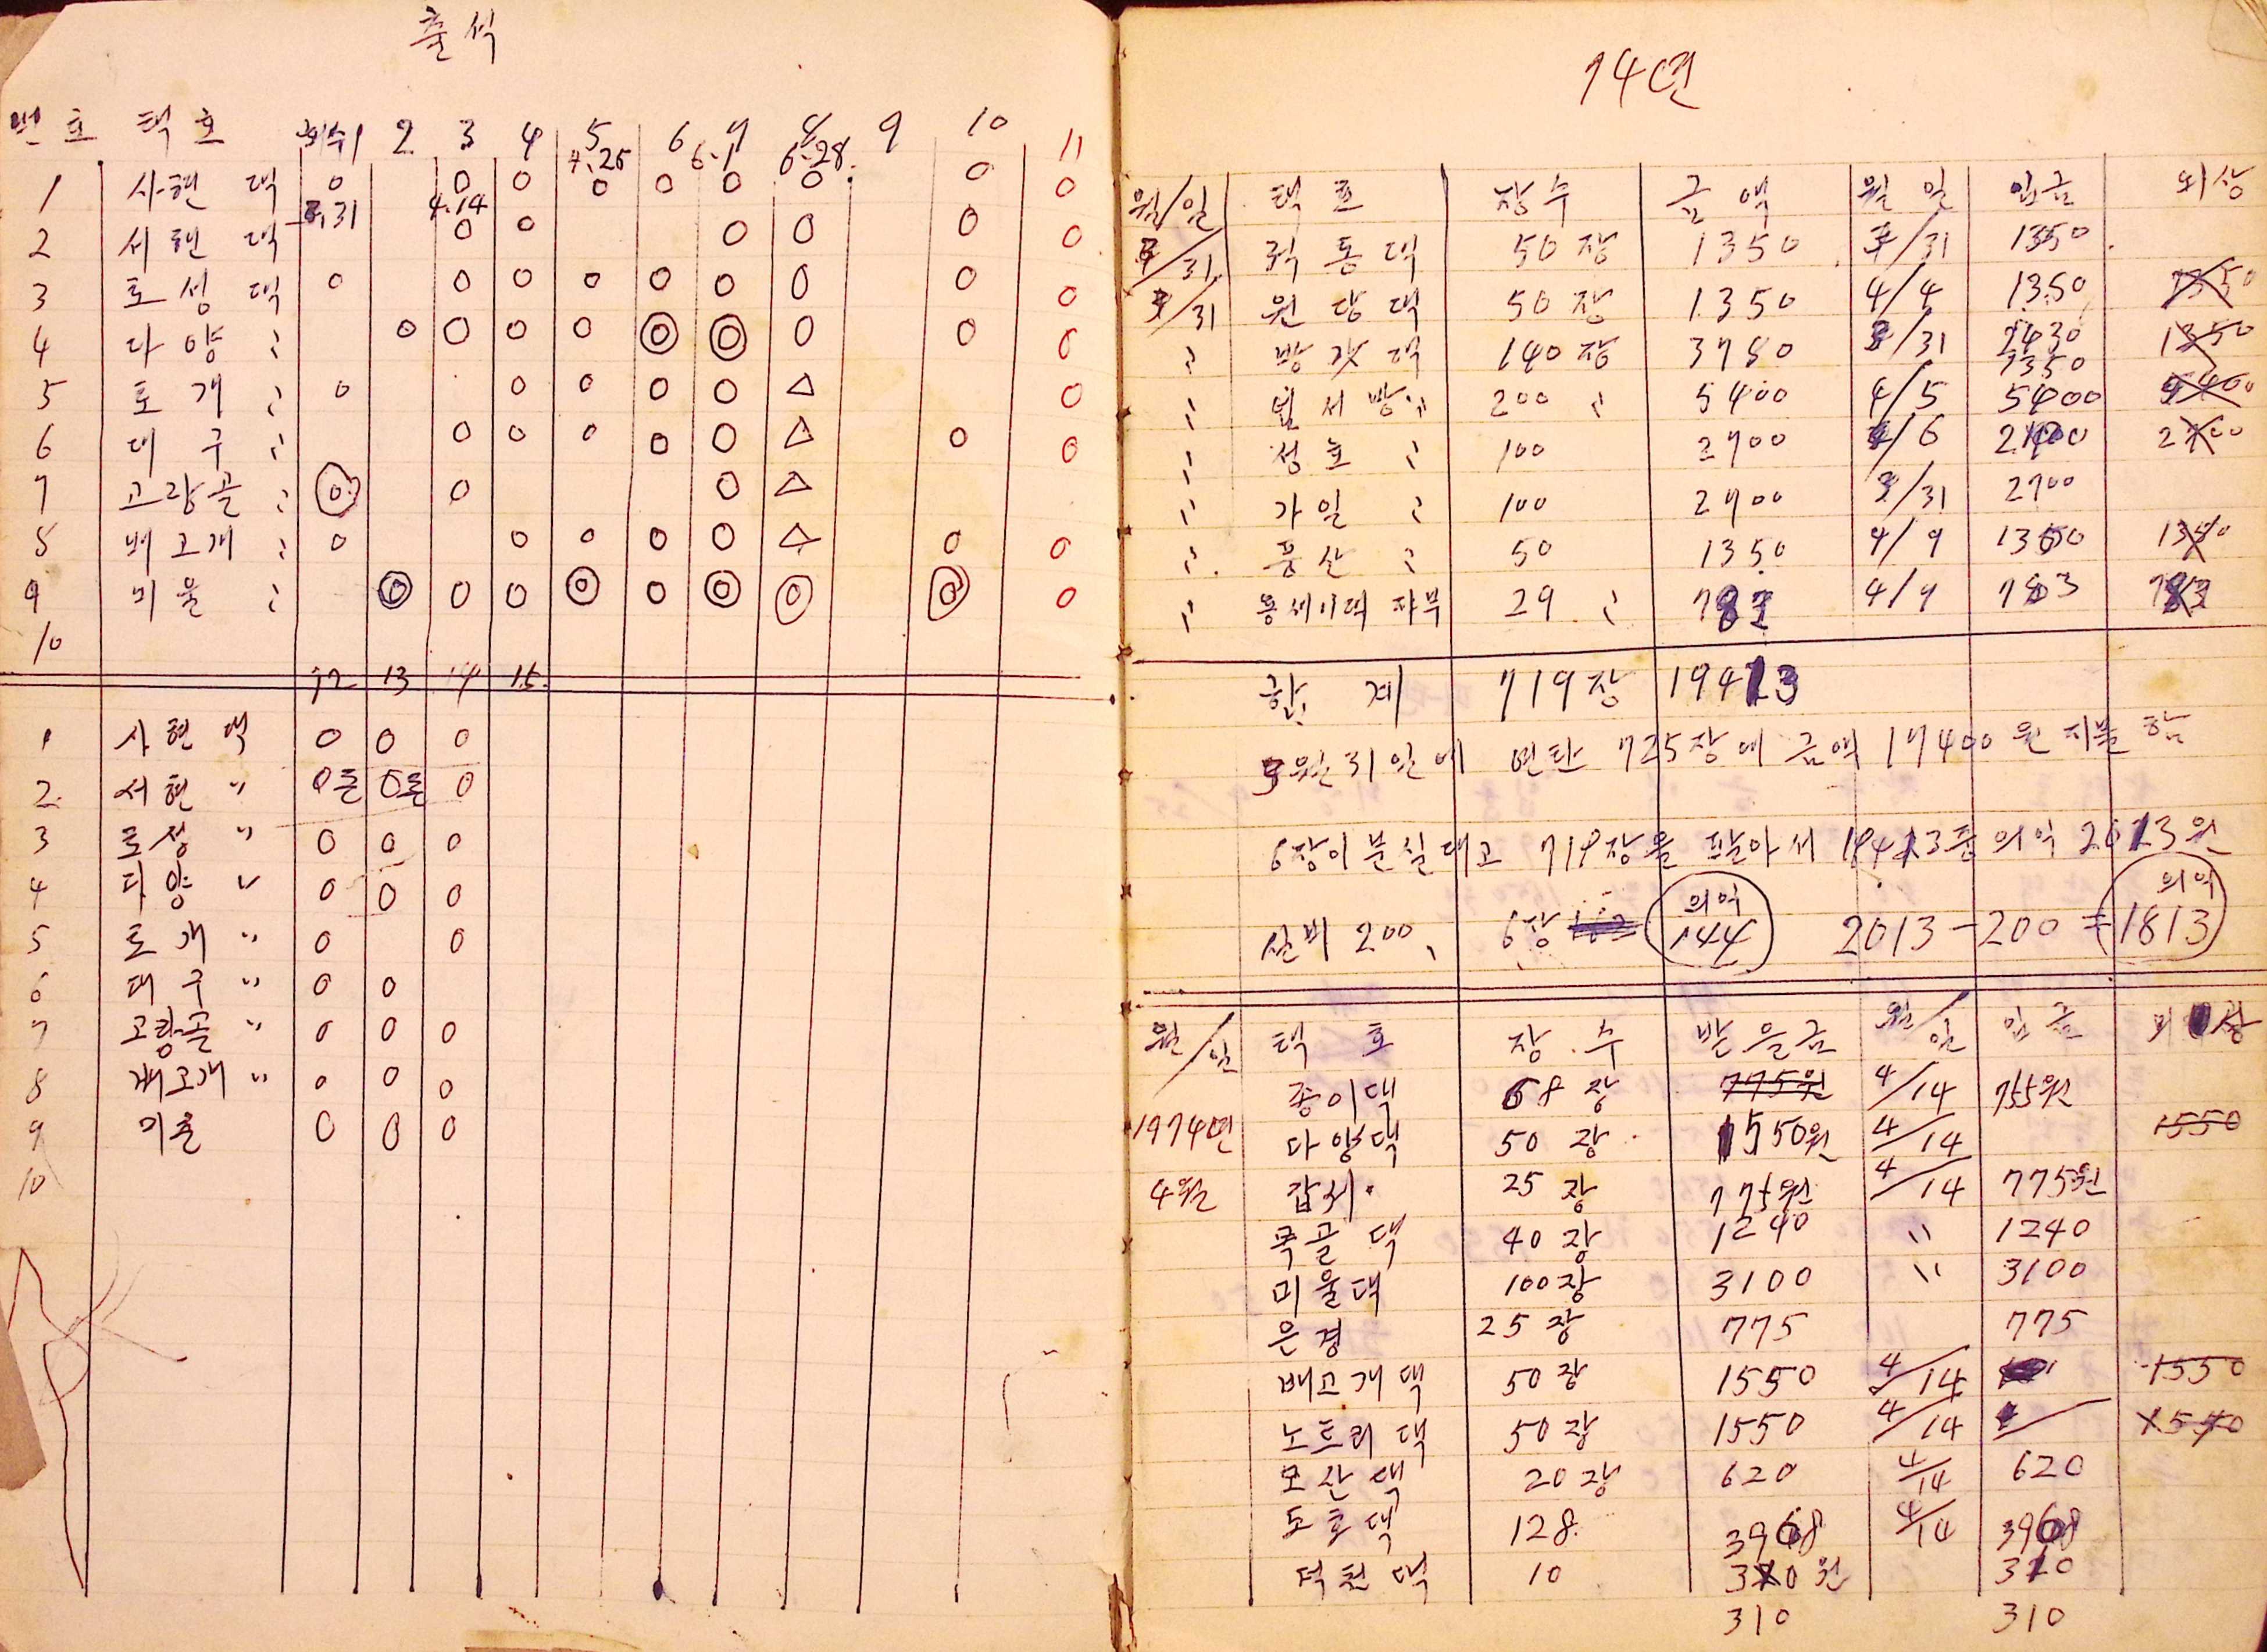 출석
번호 택호 회수1 2 3 4 5 6 7 8 9 10 11
4.25 6.1 6.28.
1 사현 댁 0 0 0 0 0 0 0 0 0
3.31 4.14
2 서현 댁 0 0 0 0 0 0
3 토성 댁 0 0 0 0 0 0 0 0 0
4 다양 〃 0 0 0 0 ◎ ◎ 0 0 0
5 토개 〃 0 0 0 0 0 △ 0
6 대구 〃 0 0 0 0 0 △ 0 0
7 고랑골 〃 ◎ 0 0 △
8 배고개 〃 0 0 0 0 0 △ 0 0
9 미울 〃 ◎ 0 0 ◎ 0 ◎ ◎ ◎ 0
10
12 13 14 15
1 사현 댁 0 0 0
2. 서현 〃 0돈 0돈 0
3 토성 〃 0 0 0
4 다양 〃 0 0 0
5 토개 〃 0 0
6 대구 〃 0 0
7 고랑골 〃 0 0 0
8 배고개 〃 0 0 0
9 미울 0 0 0
10
74년
월/일 택호 장수 금액 월일 입금 외상
3/31 동댁 50장 1350 3/31 1350
3/31 원당댁 50장 1350 4/4 1350 1350
〃 방 댁 140장 3780 3/31 2430 1350
1350
〃 서방〃 200 〃 5400 4/5 5400 5400
〃 성호 〃 100 2700 4/6 2700 2700
〃 가일 〃 100 2700 3/31 2700
〃 풍산 〃 50 1350 4/9 1350 1350
〃 자부 29 〃 783 4/9 783 783
합계 719장 19413
3월 31일에 연탄 725장에 금액 17400원 지불함
6장이 분실대고 719장을 팔아서 19413 의익 2013원
실비 200, 6장 의익 144 2013-200=1813 의익
월/일 택호 장수 받을금 월/일 입금 외상
종이댁 68장 775원 4/14 755원
1974년 다양댁 50장 1550원 4/14 1550
4월 갑서 25장 775원 4/14 775원
목골댁 40장 1240 〃 1240
미울댁 100장 3100 〃 3100
은경 25장 775 775
배고개댁 50장 1550 4/14 1550
노트리댁 50장 1550 4/14 1550
모산댁 20장 620 4/14 620
도호댁 128. 3968 4/14 3968
덕천댁 10 310원 310
310 310